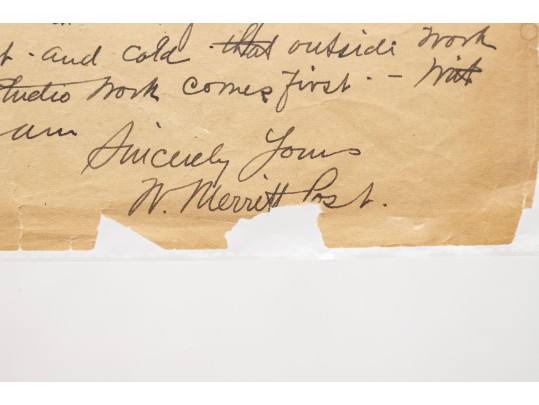 and cold that outside work
Studio work comes first - With
am
Sincerely Yours
W. Merritt Post.